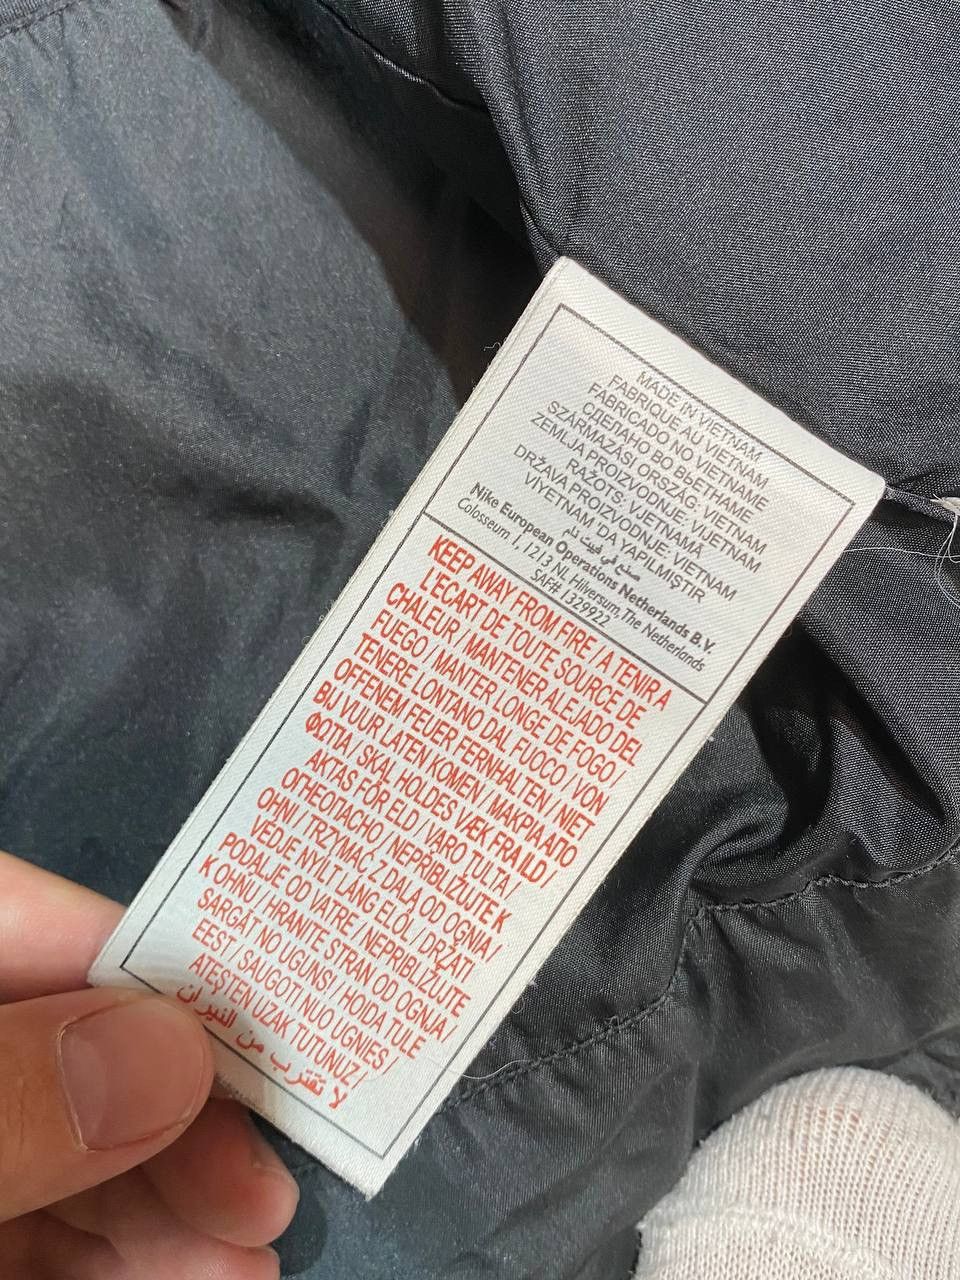 MADE IN VIETNAM
FABRIQUE AU VIETNAM
FABRICADO NO VIETNAME
СДЕЛАНО ВО ВЬЕТНАМЕ
SZÁRMAZÁSI ORSZÁG: VIETNAM
ZEMLJA PROIZVODNJE: VIJETNAM
RAŽOTS: VJETNAMĀ
DRŽAVA PROIZVODNJE: VIETNAM
VİYETNAM´DA YAPILMIŞTIR
صنع في فيت نام
Nike European Operations Netherlands B.V.
Colosseum 1, 1213 NL Hilversum, The Netherlands
SAF# 1329922
KEEP AWAY FROM FIRE / A TENIR A
L'ECART DE TOUTE SOURCE DE
CHALEUR / MANTENER ALEJADO DEL
FUEGO / MANTER LONGE DE FOGO /
TENERE LONTANO DAL FUOCO / VON
OFFENEM FEUER FERNHALTEN / NIET
BIJ VUUR LATEN KOMEN / ΜΑΚΡΙΑ ΑΠΟ
ΦΩΤΙΑ / SKAL HOLDES VÆK FRA ILD /
AKTAS FÖR ELD / VARO TULTA /
ОГНЕОПАСНО / NEPŘIBLIŽUJTE K
OHNI / TRZYMAĆ Z DALA OD OGNIA /
VÉDJE NYÍLT LÁNG ELŐL / DRŽATI
PODALJE OD VATRE / NEPRIBLIŽUJTE
K OHŇU / HRANITE STRAN OD OGNJA /
SARGĀT NO UGUNS! / HOIDA TULE
EEST / SAUGOTI NUO UGNIES /
ATEŞTEN UZAK TUTUNUZ /
لا تقترب من النيران